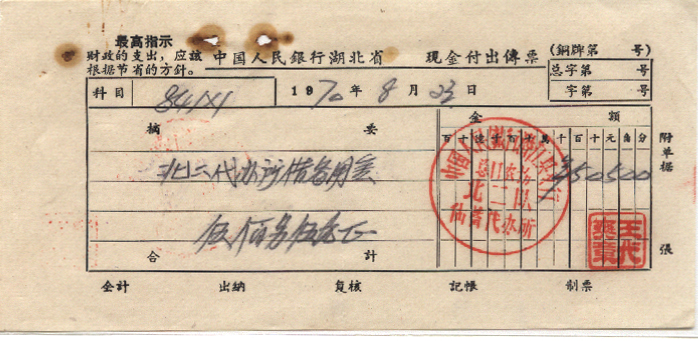 最高指示
财政的支出，应該
根据节省的方針。
中国人民銀行湖北省 現金付出傳票
(銅牌第 号)
总字第 号
字第 号
科目 841 1970年8月23日
摘要 金額
百十万千百十元角分
北二代办所借备用金
¥50500
伍佰另伍元正
合計
附单据 張
总口农场
北二队
储蓄代办所
会計 出納 复核 記帳 制票